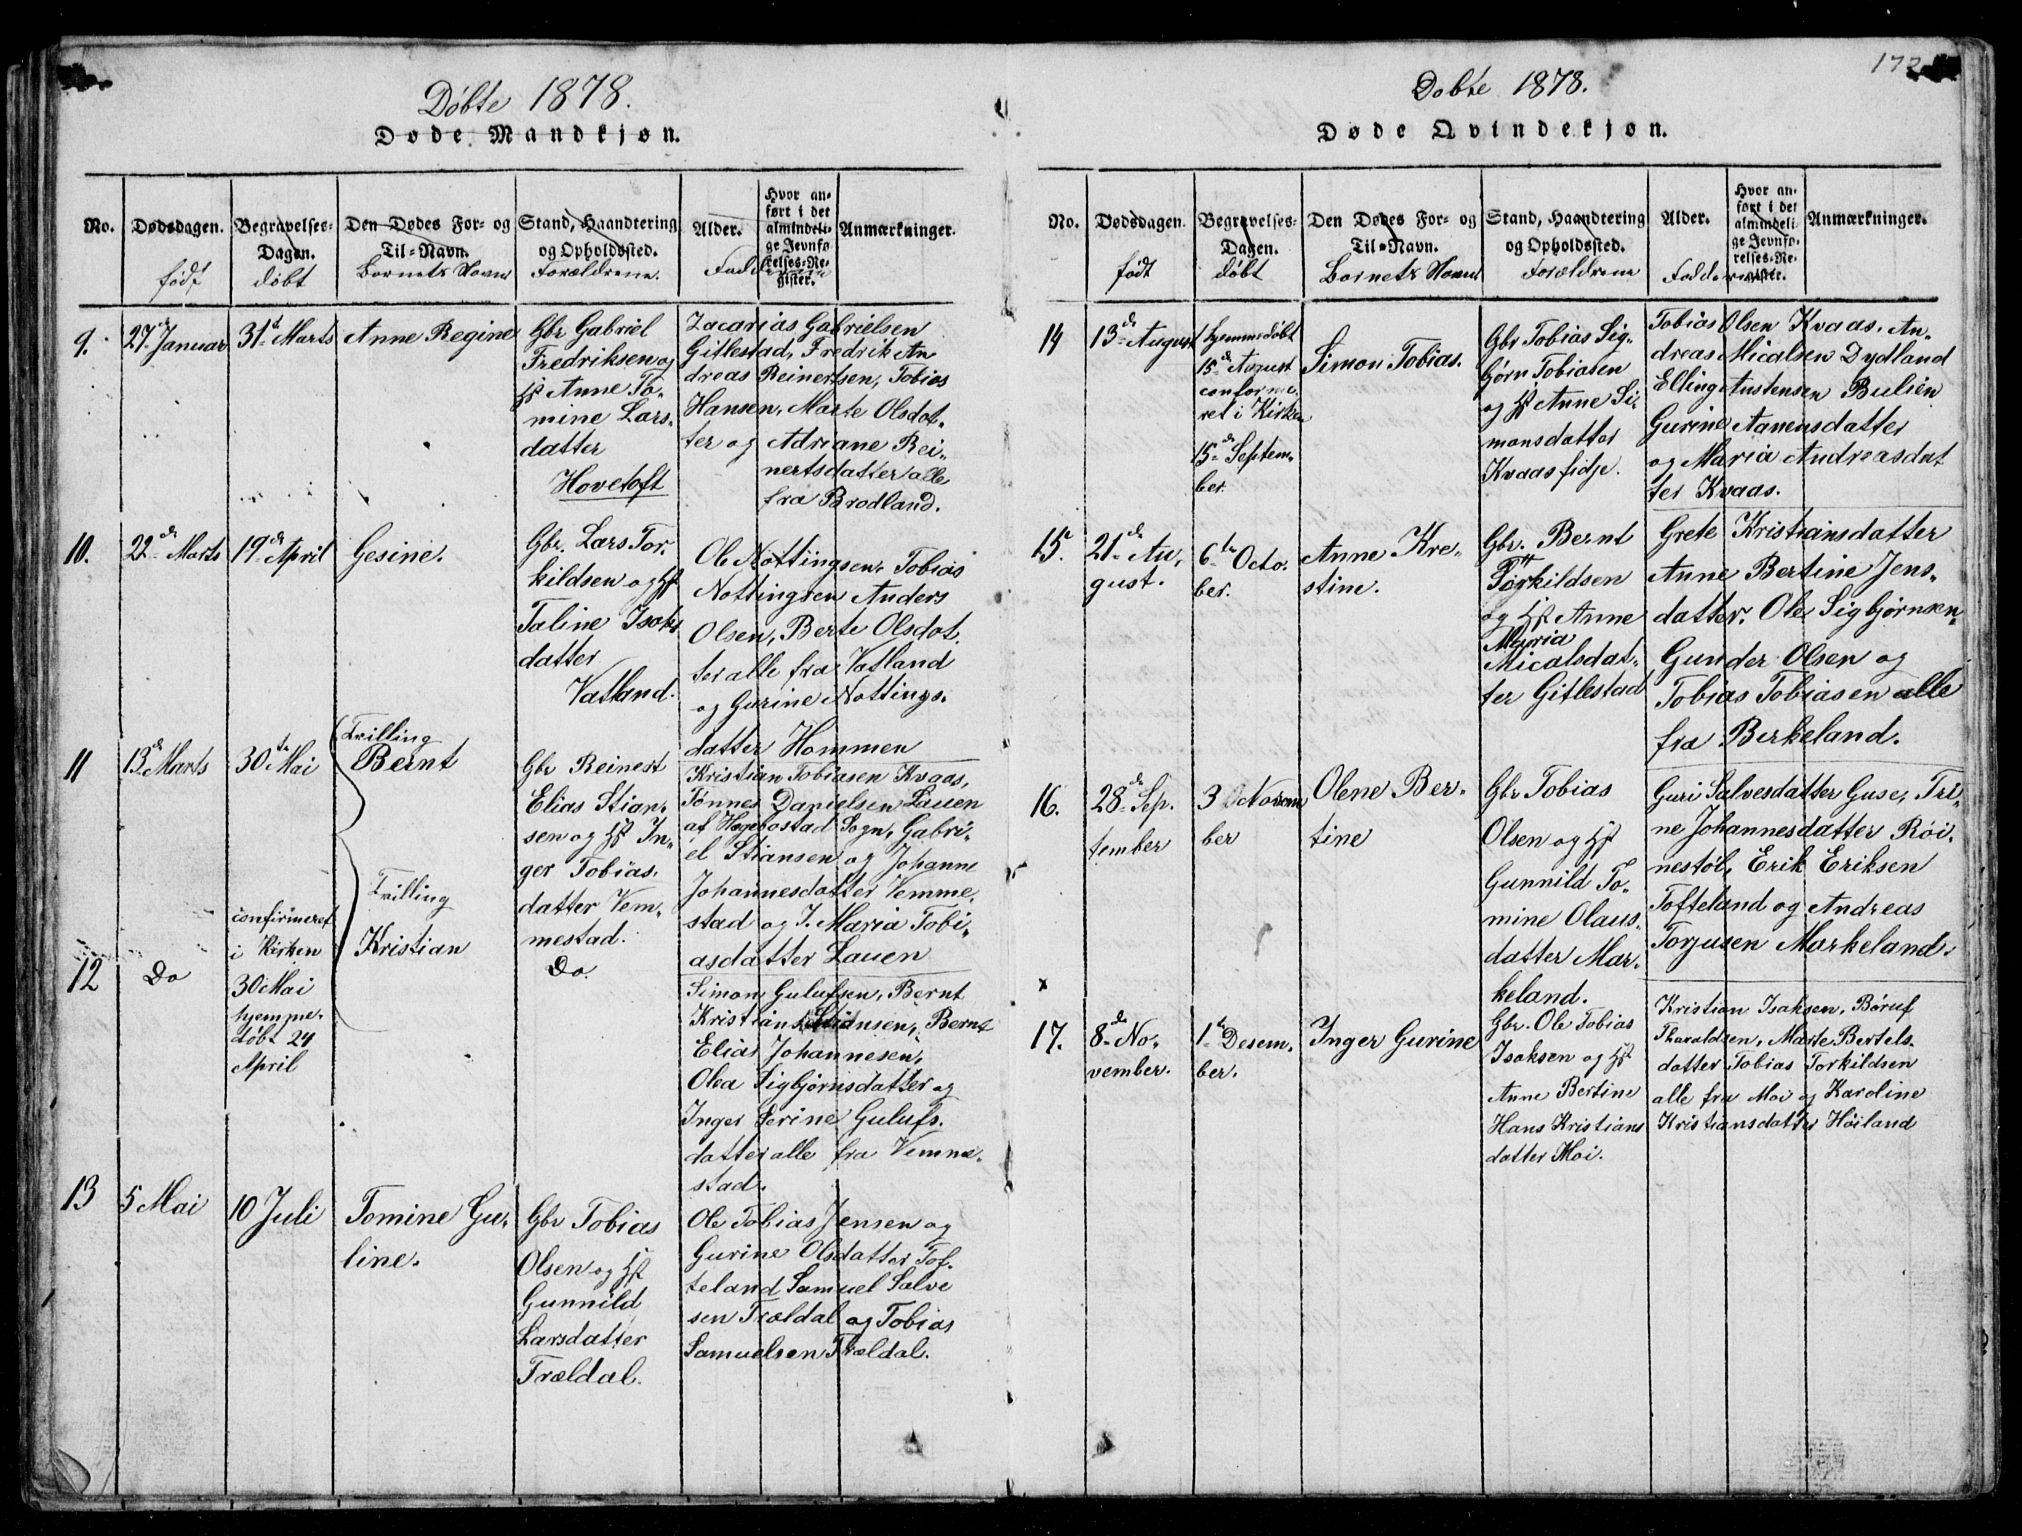 Døbte 1878.
Døde Mandkjøn.
No.
Dødsdagen.
født
Begravelses-
Dagen.
døbt
Den Dødes For- og
Til-Navn.
Barnets Navn
Stand, Haandtering
og Opholdssted.
Forældrene.
Alder.
Faddere
Hvor an-
ført i det
almindeli-
ge Jevnfø-
relses-Re-
gister.
Anmærkninger.
9.
27de Januar
31te Marts
Anne Regine
Gbr Gabriel
Fredriksen og
Hst Anne To-
mine Lars-
datter
Hovetoft
Zacarias Gabrielsen
Gitlestad, Fredrik An
dreas Reinertsen, Tobias
Hansen, Marte Olsdot-
ter og Adriane Rei-
nertsdatter alle
fra Brodland.
10.
22de Marts
19de April
Gesine.
Gbr. Lars Tor-
kildsen og Hst
Taline Isaks
datter
Vatland.
Ole Nottingsen, Tobias
Nottingsen Anders
Olsen, Berte Olsdot-
ter alle fra Vatland
og Gurine Nottings-
datter Hommen
11
13de Marts
30te Mai
Trilling
Bernt
Gbr Reinert
Elias Stian-
sen og Hst In-
ger Tobias-
datter Vem-
mestad.
Kristian Tobiasen Kvaas,
Tønnes Danielsen Lauen
af Hægebostad Sogn, Gabri-
el Stiansen og Johanne
Johannesdatter Vemme-
stad og T. Maria Tobi-
asdatter Lauen
12
Do
confirmeret
i Kirken
30 Mai
hjemme-
døbt 24
April
Trilling
Kristian
Do.
Simon Gulufsen, Bernt
Kristian Stiansen, Bernt
Elias Johannesen,
Olea Sigbjørnsdatter og
Inger Serine Gulufs-
datter alle fra Vemme-
stad.
13
5 Mai
10 Juli
Tomine Gu-
line.
Gbr Tobias
Olsen og Hst
Gunnild
Larsdatter
Trældal.
Ole Tobias Jensen og
Gurine Olsdatter Tof-
teland Samuel Salve
sen Trældal og Tobias
Samuelsen Trældal.
172
Døbte 1878.
Døde Qvindekjøn.
No.
Dødsdagen.
født
Begravelses-
Dagen.
døbt
Den Dødes For- og
Til-Navn.
Barnets Navn
Stand, Haandtering
og Opholdssted.
Forældrene
Alder.
Faddere
Hvor an-
ført i det
almindeli-
ge Jevnfø-
relses-Re-
gister.
Anmærkninger.
14
13de August
hjemmedøbt
15de August
confirme-
ret i Kirken
15de Septem-
ber.
Simon Tobias.
Gbr Tobias Sig-
bjørn Tobiasen
og Hst Anne Si-
monsdatter
Kvaasfidje.
Tobias Olsen Kvaas, An-
dreas Micalsen Dydland
Elling Austensen Bulien
Gurine Aanensdatter
og Maria Andreasdat
ter Kvaas.
15.
21de Au-
gust.
6te Octo-
ber.
Anne Kre-
stine.
Gbr. Bernt
Torkildsen
og Hst Anne
Maria
Micalsdat-
ter Gitlestad
Grete Kristiansdatter
Anne Bertine Jens-
datter. Ole Sigbjørnsen,
Gunder Olsen og
Tobias Tobiasen alle
fra Berkeland.
16.
28de Sep-
tember
3 Novem
ber
Olene Ber-
tine
Gbr Tobias
Olsen og Hst
Gunnild To-
mine Olaus-
datter Mar-
keland.
Guri Salvesdatter Guse, Tri-
ne Johannesdatter Röi-
nestøl, Erik Eriksen
Tofteland og Andreas
Torjusen Markeland.
x
17.
8de No-
vember.
1te Desem-
ber.
Inger Gurine
Gbr. Ole Tobias
Isaksen og Hst
Anne Bertine
Hans Kristians
datter Moi.
Kristian Isaksen, Børuf
Tharaldsen, Marte Bertels-
datter Tobias Torkildsen
alle fra Moi og Karoline
Kristiansdatter Höiland